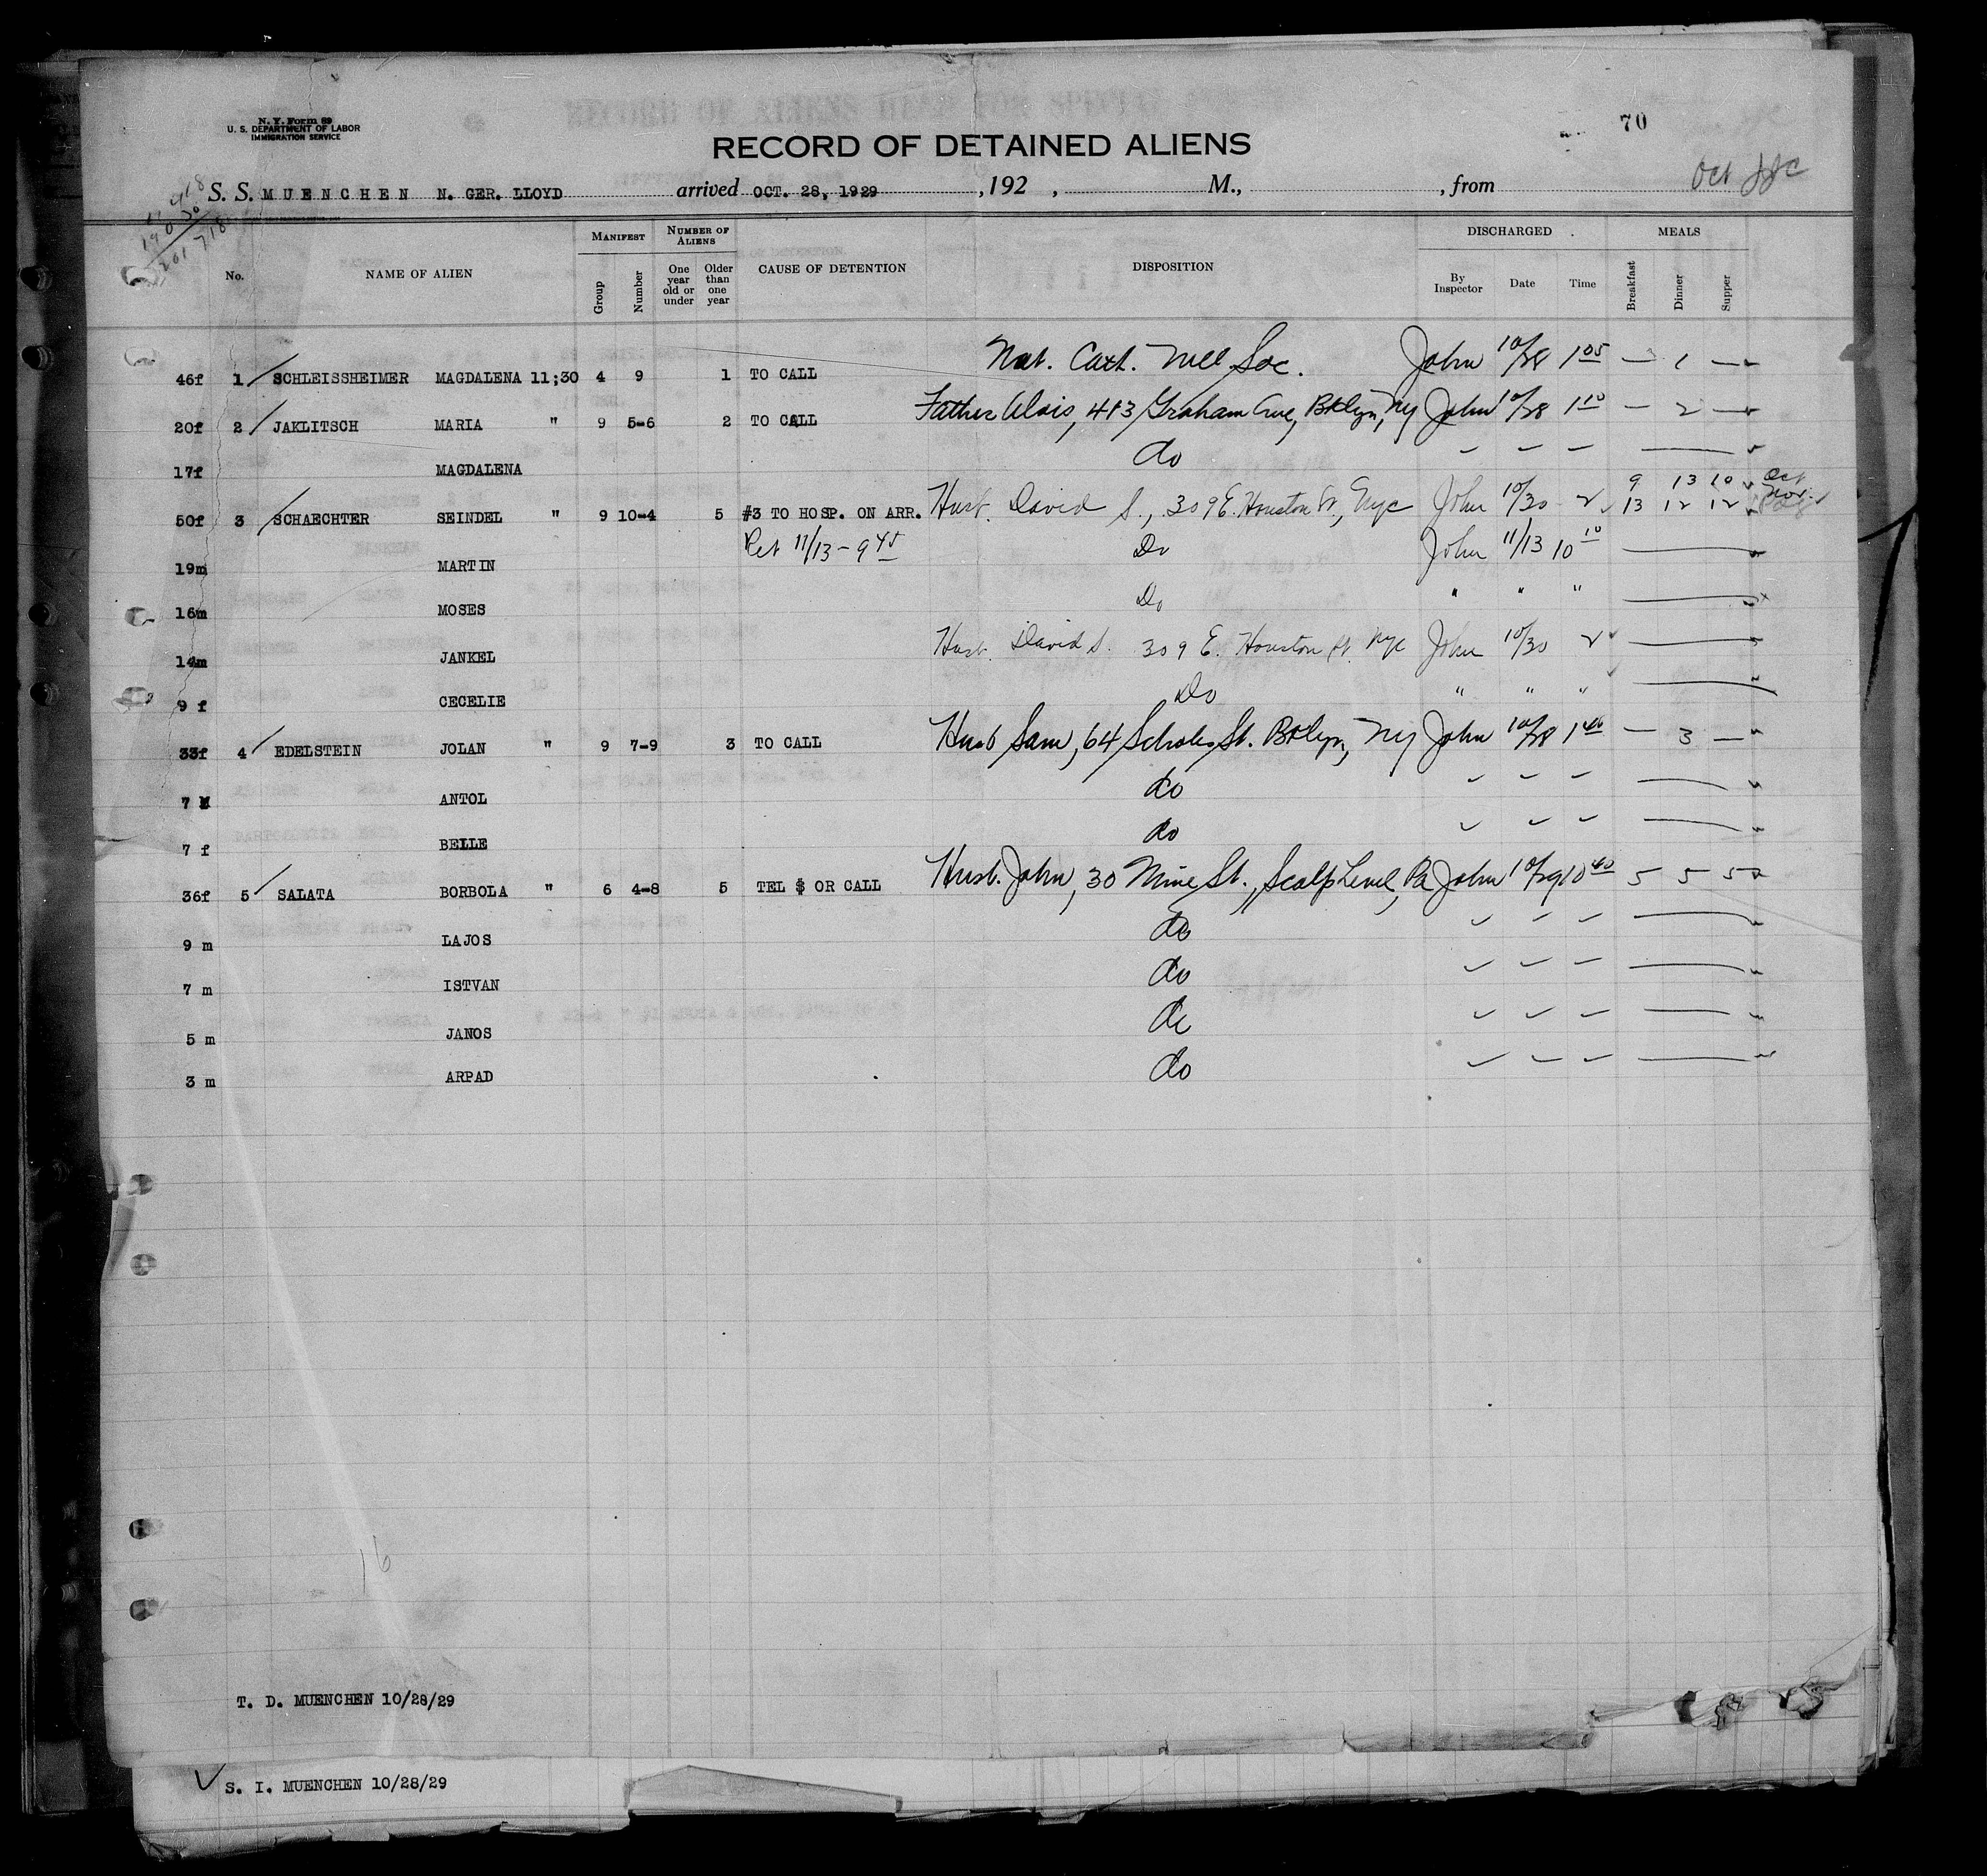 N. Y. Form 89
U. S. DEPARTMENT OF LABOR
IMMIGRATION SERVICE
70
RECORD OF DETAINED ALIENS
Oct
S. S. MUENCHEN N. GER. LLOYD arrived OCT. 28, 1929, 192 , M., , from
MANIFEST NUMBER OF ALIENS DISCHARGED MEALS
No. NAME OF ALIEN Group Number One year old or under Older than one year CAUSE OF DETENTION DISPOSITION By Inspector Date Time Breakfast Dinner Supper
46f 1 SCHLEISSHEIMER MAGDALENA 11;30 4 9 1 TO CALL Nat. Cath. Well Soc. John 10/28 1 05 — 1 —
20f 2 JAKLITSCH MARIA " 9 5-6 2 TO CALL Father Alois, 413 Graham Ave, Bklyn, Ny John 10/28 1 10 — 2 —
17f MAGDALENA do
9 13 10 Oct
50f 3 SCHAECHTER SEINDEL " 9 10-4 5 #3 TO HOSP. ON ARR. Husb. David S., 309 E. Houston St., Nyc John 10/30 2 13 12 12 Nov.
Ret 11/13 - 9 45
19m MARTIN Do John 11/13 10 10
16m MOSES Do " " "
14m JANKEL Husb. David S. 309 E. Houston St. Nyc John 10/30 2
9 f CECELIE Do " " "
33f 4 EDELSTEIN JOLAN " 9 7-9 3 TO CALL Husb Sam, 64 Scholes St. Bklyn, Ny John 10/28 1 40 — 3 —
7 M ANTOL do
7 f BELLE do
36f 5 SALATA BORBOLA " 6 4-8 5 TEL $ OR CALL Husb. John, 30 Mine St., Scalp Level, Pa John 10/29 10 40 5 5 5
9 m LAJOS do
7 m ISTVAN do
5 m JANOS do
3 m ARPAD do
16
T. D. MUENCHEN 10/28/29
S. I. MUENCHEN 10/28/29